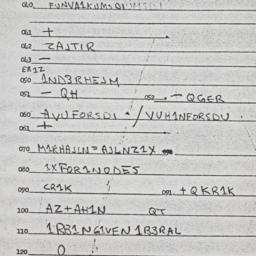 040 FUNVA1KUMSDI
041 +
042 ZAJTIR
043 —
ER1Z
050 1ND3RHEJM
051 — QH 052 — QGER
060 AVUFORSDI ·/ VUH1NFORSDV
061 +
070 M1RHAJLN = AJLNZ1X
080 1XFOR1NODES
090 CR1K 091 + QKR1K
100 AZ + AH1N QT
110 1RB1NG1VEN 1B3RAL
120 O